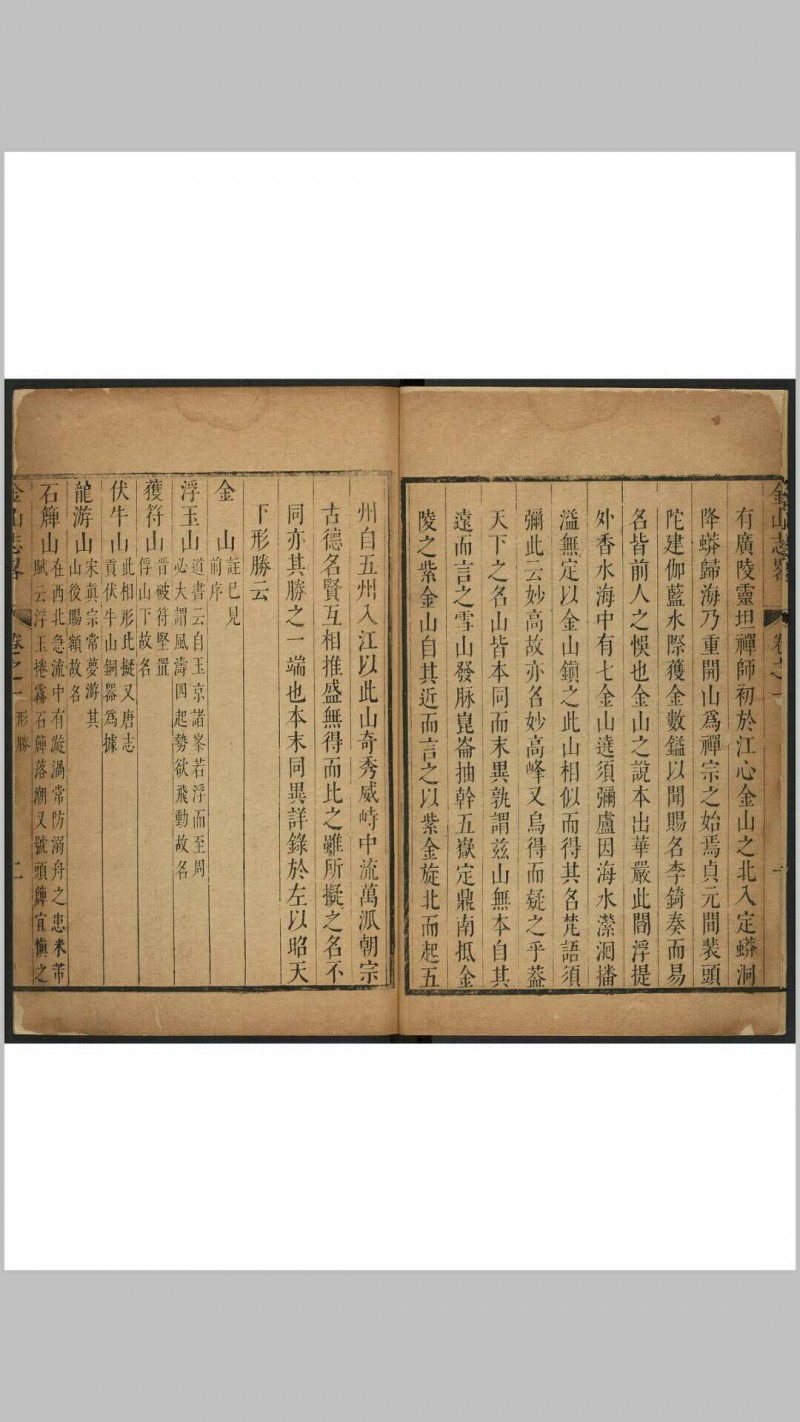 有廣陵靈坦禪師初於江心金山之北入定蟒洞
降蟒歸海乃重開山爲禪宗之始焉貞元間裴頭
陀建伽藍水際獲金數鎰以聞賜名李錡奏而易
名皆前人之悞也金山之說本出華嚴此閻浮提
外香水海中有七金山遶須彌盧因海水瀠洄播
溢無定以金山鎮之此山相似而得其名梵語須
彌此云妙高故亦名妙高峰又烏得而疑之乎葢
天下之名山皆本同而末異孰謂兹山無本自其
遠而言之雪山發脉崑崙抽幹五嶽定鼎南抵金
陵之紫金山自其近而言之以紫金旋北而起五
州自五州入江以此山奇秀威峙中流萬派朝宗
古德名賢互相推盛無得而比之雖所擬之名不
同亦其勝之一端也本末同異詳錄於左以昭天
下形勝云
金山 註已見前序
浮玉山 道書云自玉京諸峯若浮而至周必大謂風濤四起勢欲飛動故名
獲符山 晋破符堅置俘山下故名
伏牛山 此相形此擬又唐志貢伏牛山銅器爲據
龍游山 宋真宗常夢游其山後賜額故名
石簰山 在西北急流中有漩渦常防溺舟之患米芾賦云浮玉捲霧石簰落潮又號頭簰宜愼之
金山志畧 卷之一 形勝 二